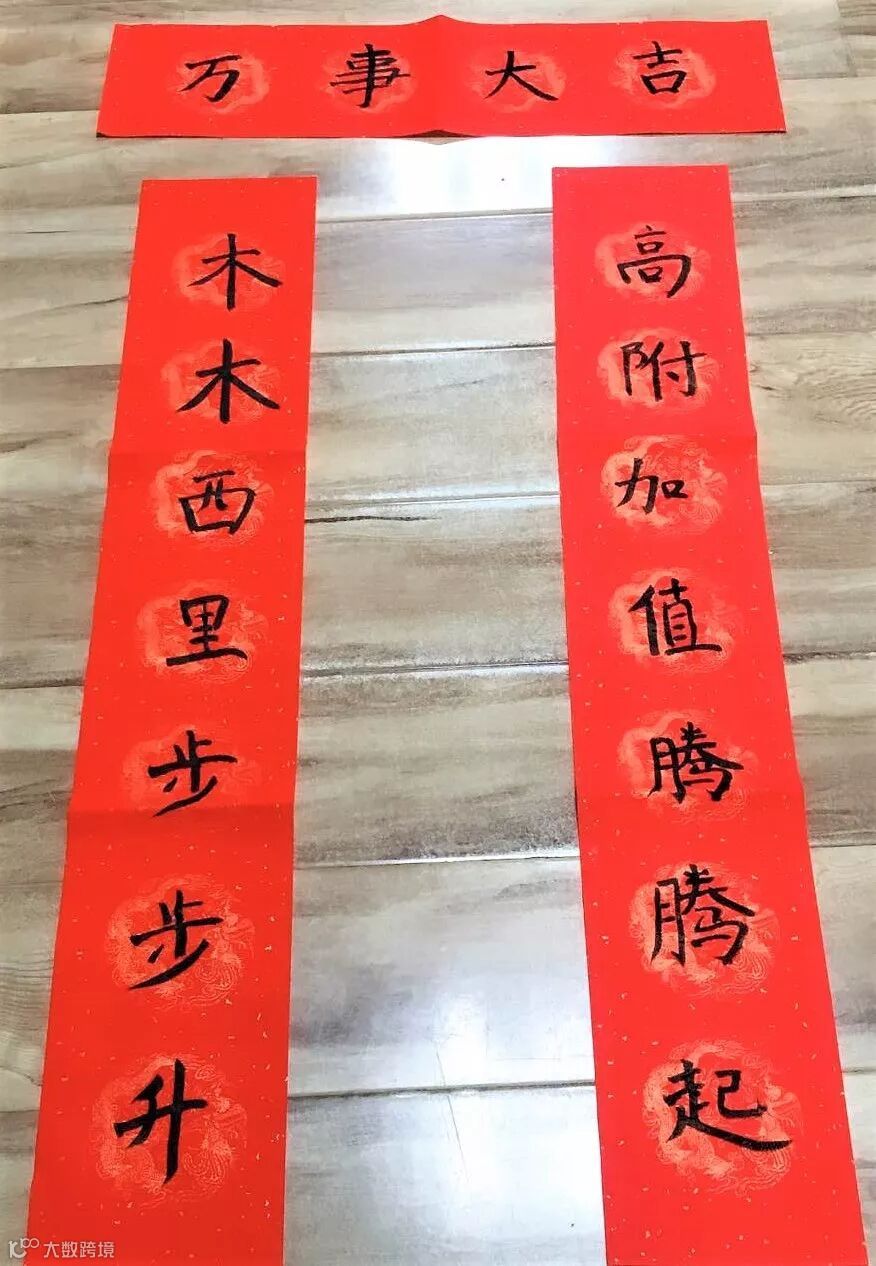 万事大吉
高附加值腾腾起
木木西里步步升
大数跨境